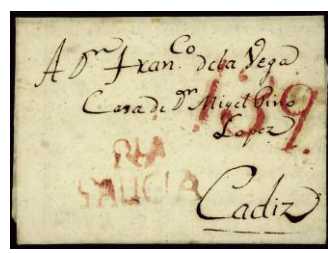 A Dn Franco de la Vega
Casa de Dn Migel Pino
Lopez
Cadiz
GALICIA